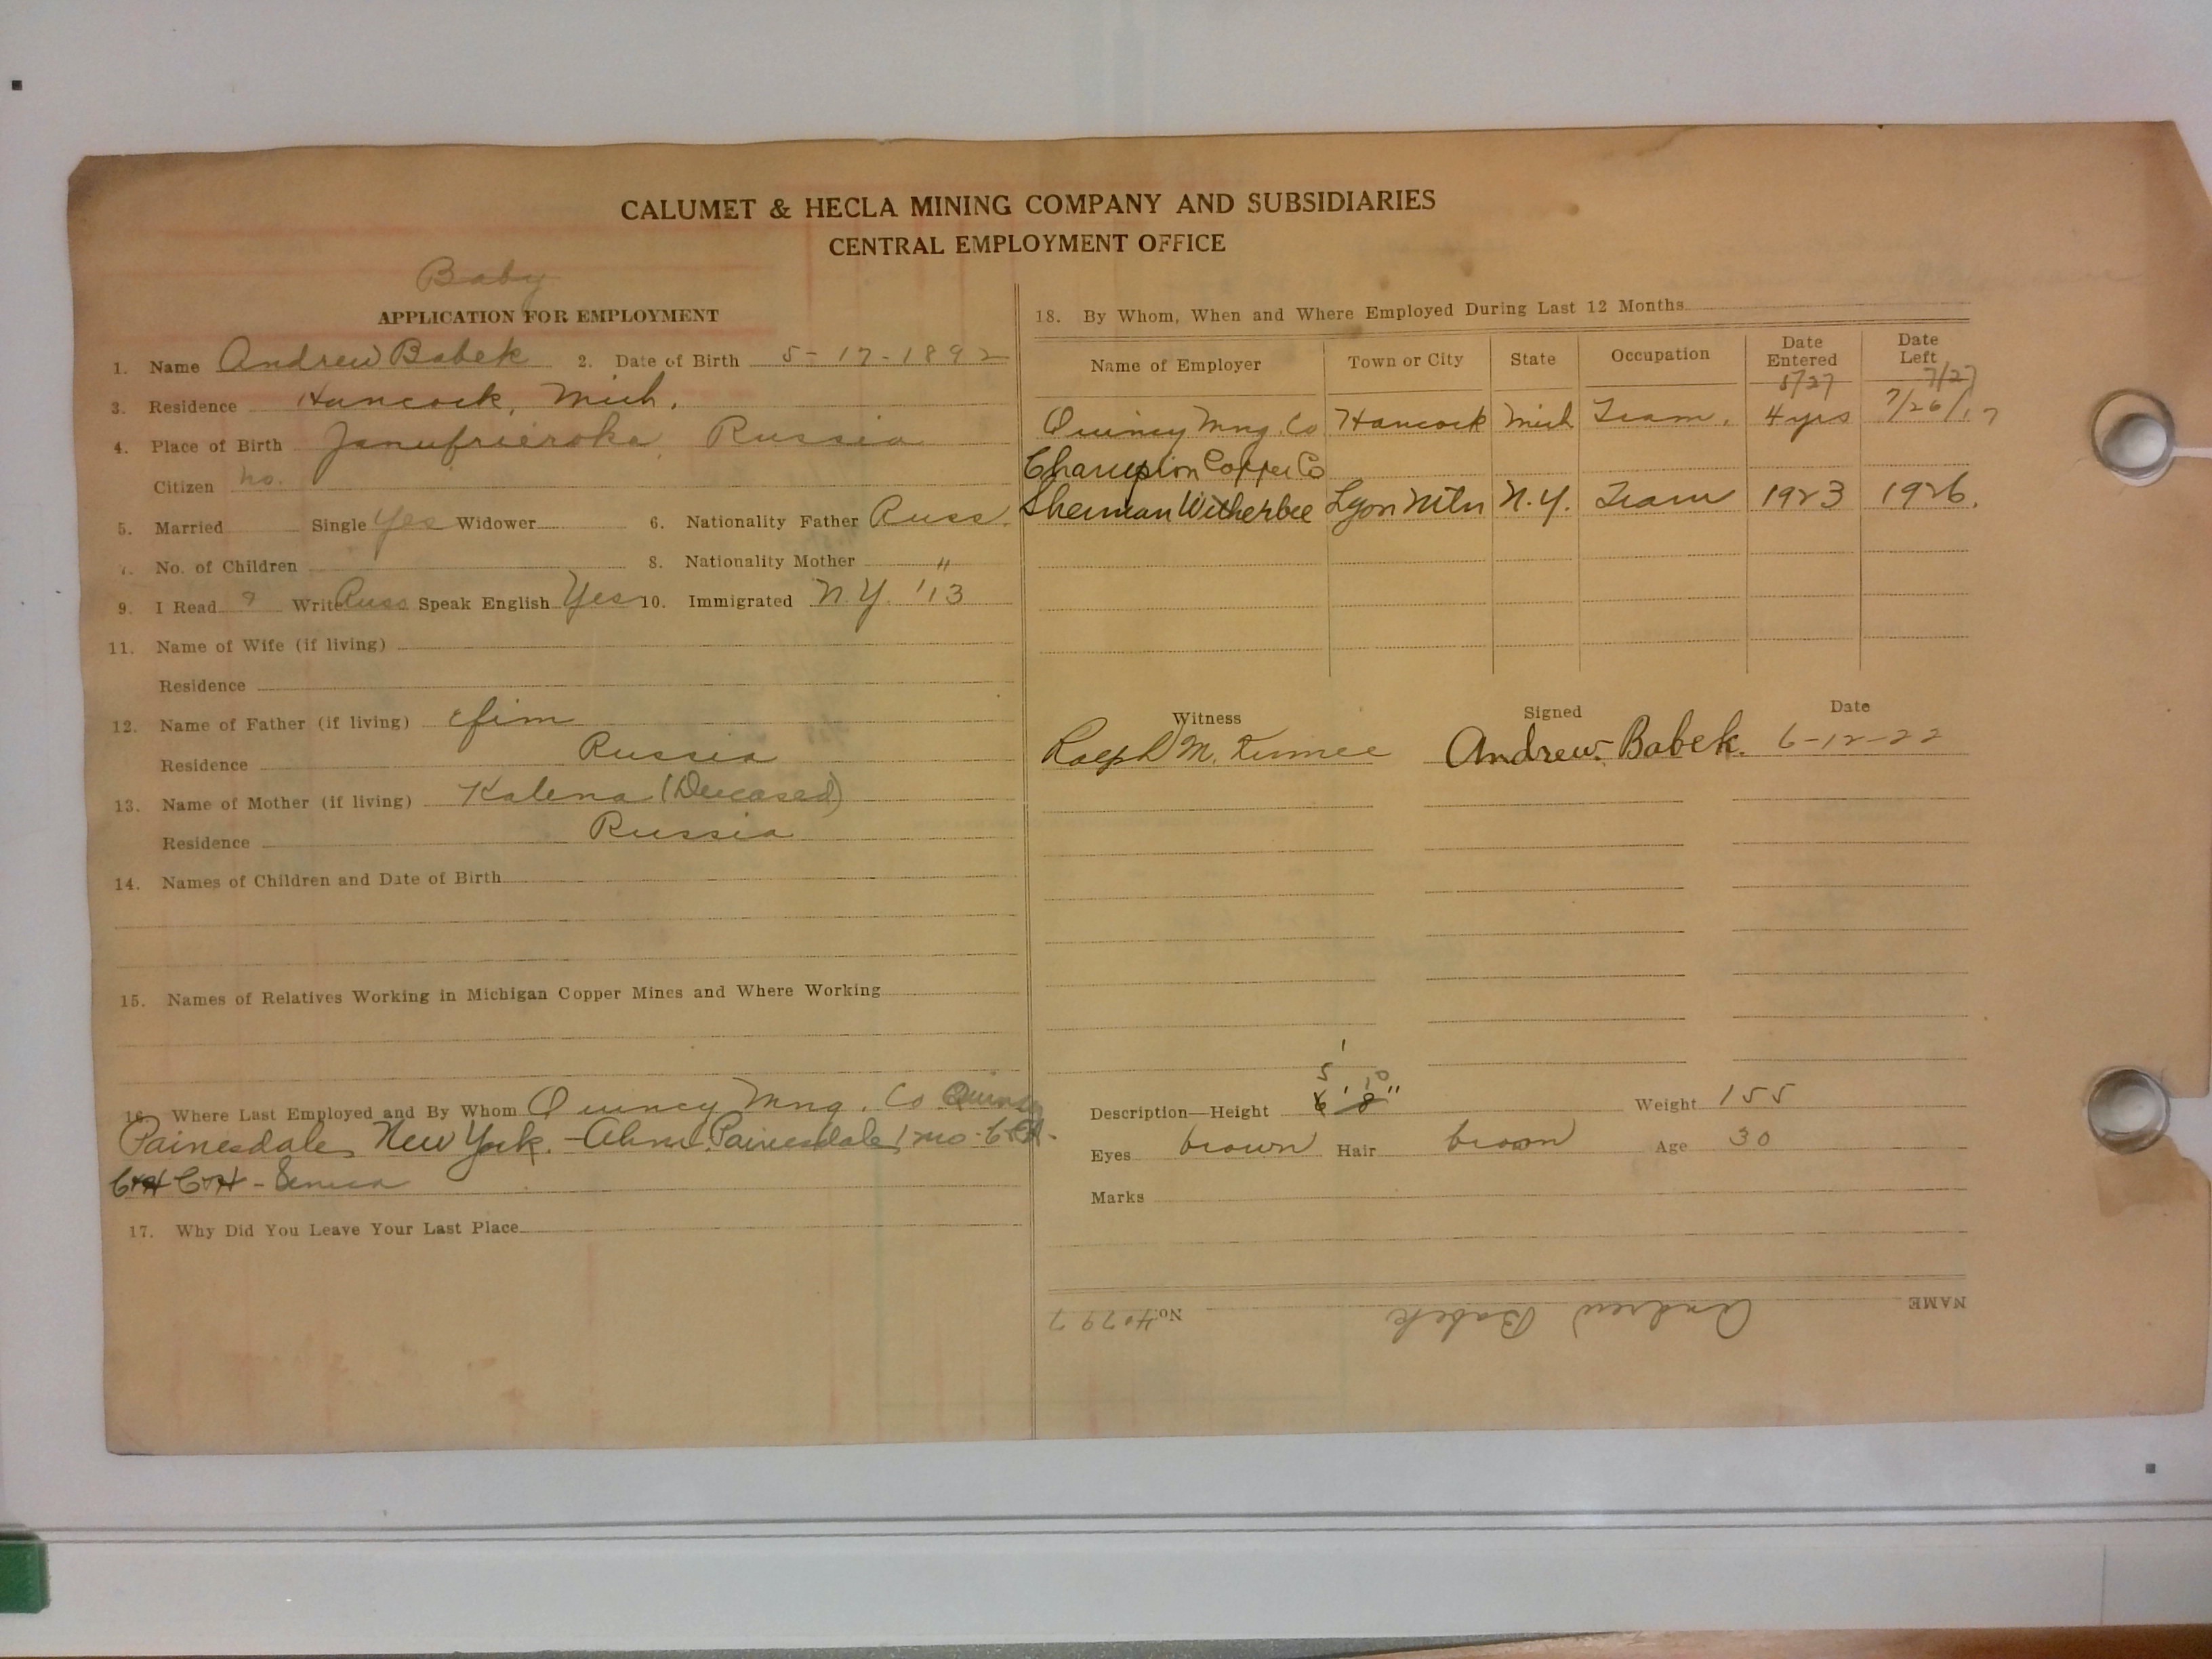 CALUMET & HECLA MINING COMPANY AND SUBSIDIARIES
CENTRAL EMPLOYMENT OFFICE
Baby
APPLICATION FOR EMPLOYMENT
1. Name Andrew Babek 2. Date of Birth 5-17-1892
3. Residence Hancock, Mich.
4. Place of Birth Russia
Citizen no.
5. Married Single Yes Widower 6. Nationality Father Russ.
7. No. of Children 8. Nationality Mother "
9. I Read ? Write Russ Speak English Yes 10. Immigrated N.Y. '13
11. Name of Wife (if living)
Residence
12. Name of Father (if living) Efim
Residence Russia
13. Name of Mother (if living) Kalena (Deceased)
Residence Russia
14. Names of Children and Date of Birth
15. Names of Relatives Working in Michigan Copper Mines and Where Working
16. Where Last Employed and By Whom Quincy Mng. Co Quincy
Painesdale, New York. - Painesdale 1 mo - C&H -
C&H C&H - Seneca
17. Why Did You Leave Your Last Place
18. By Whom, When and Where Employed During Last 12 Months
Name of Employer Town or City State Occupation Date Entered Date Left
5/27 7/27
Quincy Mng. Co Hancock Mich Tram. 4 yrs 7/26/17
Champion Copper Co
Sherman Witherbee Lyon Mtn N.Y. Tram 1923 1926.
Witness Signed Date
Ralph M. Andrew. Babek. 6-12-22
5' 10
6' 8" 
Description—Height Weight 155
Eyes brown Hair brown Age 30
Marks
NAME Andrew Babek No. 40797